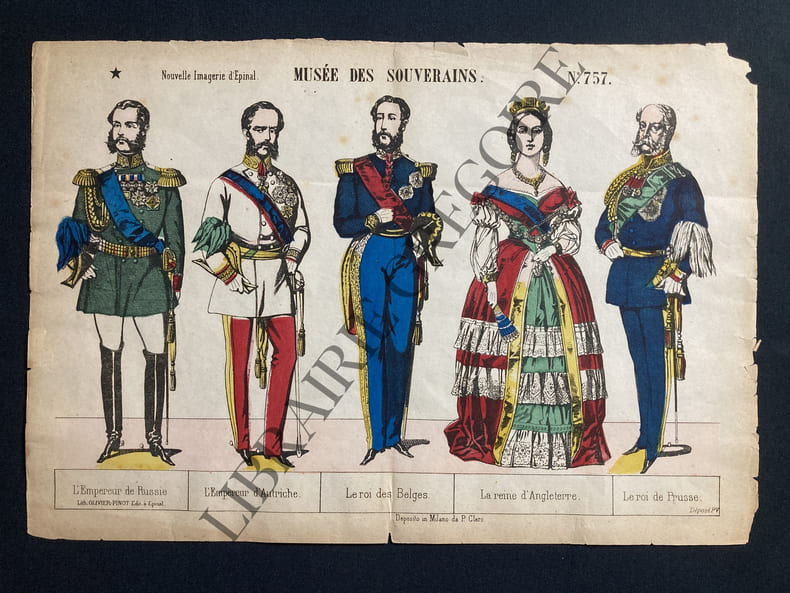 ★ Nouvelle Imagerie d'Epinal. MUSÉE DES SOUVERAINS. No. 757.
L'Empereur de Russie
Lith. OLIVIER-PINOT Edit. à Epinal.
L'Empereur d'Autriche.
Le roi des Belges.
La reine d'Angleterre.
Le roi de Prusse.
Déposé PV
Deposito in Milano da P. Clerc
LIBRAIRIE GREGOIRE